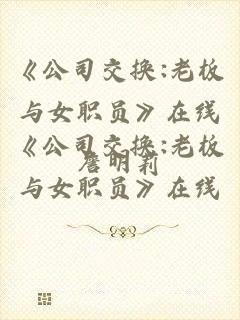 《公司交换:老板
与女职员》在线
《公司交换:老板
詹明莉
与女职员》在线